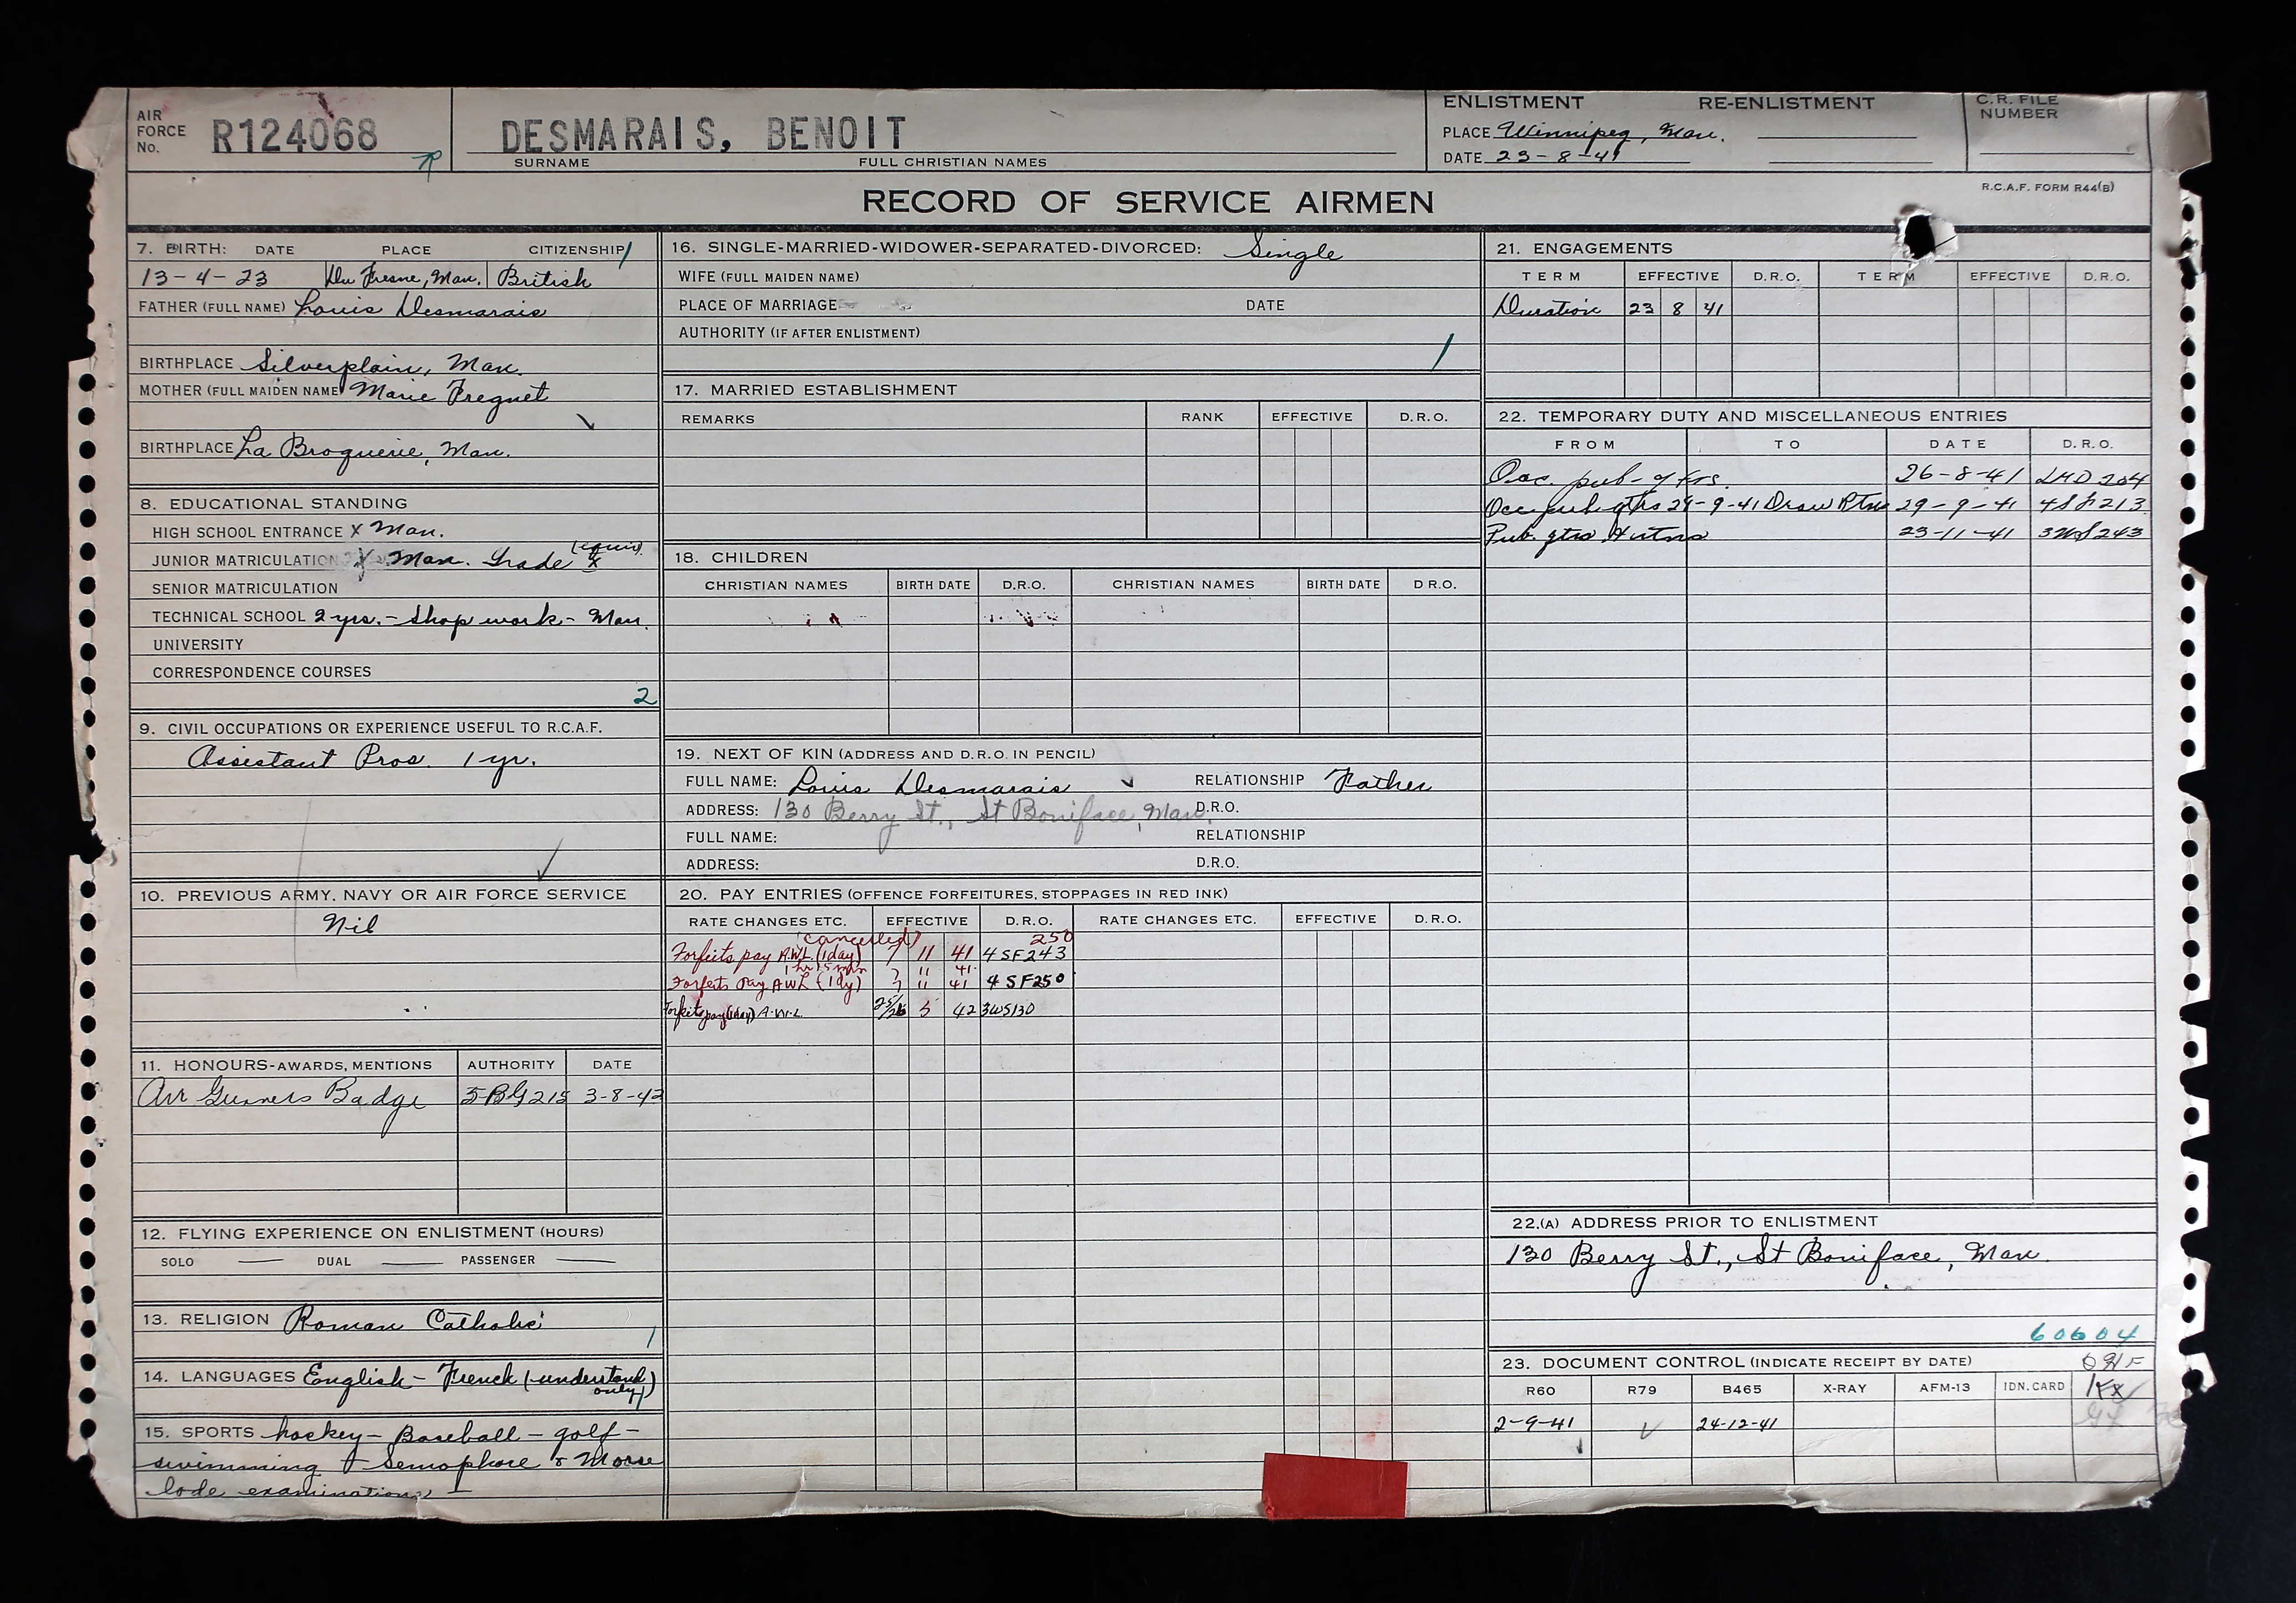 AIR FORCE No. R124068
DESMARAIS, BENOIT
SURNAME FULL CHRISTIAN NAMES
ENLISTMENT RE-ENLISTMENT
PLACE Winnipeg, Man.
DATE 23-8-41
C.R. FILE NUMBER
RECORD OF SERVICE AIRMEN
R.C.A.F. FORM R44(B)
7. BIRTH: DATE PLACE CITIZENSHIP
13-4-23 Du Fresne, Man. British
FATHER (FULL NAME) Louis Desmarais
BIRTHPLACE Silverplain, Man.
MOTHER (FULL MAIDEN NAME) Marie Freguet
BIRTHPLACE La Broquerie, Man.
8. EDUCATIONAL STANDING
HIGH SCHOOL ENTRANCE x Man.
JUNIOR MATRICULATION Man. Grade x (equiv)
SENIOR MATRICULATION
TECHNICAL SCHOOL 2 yrs. - Shop work - Man.
UNIVERSITY
CORRESPONDENCE COURSES
2
9. CIVIL OCCUPATIONS OR EXPERIENCE USEFUL TO R.C.A.F.
Assistant Pros. 1 yr.
10. PREVIOUS ARMY, NAVY OR AIR FORCE SERVICE
Nil
11. HONOURS-AWARDS, MENTIONS AUTHORITY DATE
Air Gunners Badge 5BG215 3-8-42
12. FLYING EXPERIENCE ON ENLISTMENT (HOURS)
SOLO — DUAL — PASSENGER —
13. RELIGION Roman Catholic
14. LANGUAGES English - French (understand only)
15. SPORTS hockey - Baseball - golf -
swimming + Semophore & Morse
Code examinations
16. SINGLE-MARRIED-WIDOWER-SEPARATED-DIVORCED: Single
WIFE (FULL MAIDEN NAME)
PLACE OF MARRIAGE DATE
AUTHORITY (IF AFTER ENLISTMENT)
17. MARRIED ESTABLISHMENT
REMARKS RANK EFFECTIVE D.R.O.
18. CHILDREN
CHRISTIAN NAMES BIRTH DATE D.R.O. CHRISTIAN NAMES BIRTH DATE D.R.O.
19. NEXT OF KIN (ADDRESS AND D.R.O. IN PENCIL)
FULL NAME: Louis Desmarais RELATIONSHIP Father
ADDRESS: 130 Berry St., St Boniface, Man. D.R.O.
FULL NAME: RELATIONSHIP
ADDRESS: D.R.O.
20. PAY ENTRIES (OFFENCE FORFEITURES, STOPPAGES IN RED INK)
RATE CHANGES ETC. EFFECTIVE D.R.O. RATE CHANGES ETC. EFFECTIVE D.R.O.
(cancelled) 250
Forfeits pay A.W.L. (1 day) 7 11 41 4SF243
1 hr 15 min 7 11 41
Forfeits Pay AWL (1 dy) 7 11 41 4SF250
Forfeits pay (1 day) A.W.L. 25/26 5 42 3WS130
21. ENGAGEMENTS
TERM EFFECTIVE D.R.O. TERM EFFECTIVE D.R.O.
Duration 23 8 41
22. TEMPORARY DUTY AND MISCELLANEOUS ENTRIES
FROM TO DATE D.R.O.
Occ. pub. 26-8-41 204
Occ pub qtrs 29-9-41 Draw 29-9-41 213
Pub. qtrs 23-11-41 243
22.(A) ADDRESS PRIOR TO ENLISTMENT
130 Berry St., St Boniface, Man.
60604
23. DOCUMENT CONTROL (INDICATE RECEIPT BY DATE)
R60 R79 B465 X-RAY AFM-13 IDN.CARD
2-9-41 24-12-41